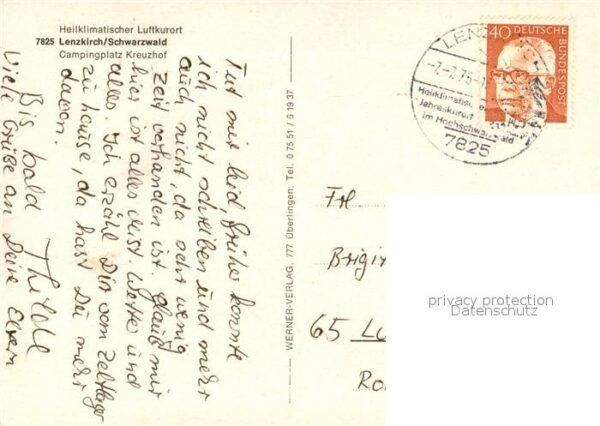 Heilklimatischer Luftkurort
7825 Lenzkirch/Schwarzwald
Campingplatz Kreuzhof
Tut mir leid, früher konnte
ich nicht schreiben und mehr
auch nicht, da sehr wenig
Zeit vorhanden ist. glaub mir
hier ist alles Mist. Wetter und
alles. Ich erzähl Dir vom Zeltlager
zu hause, da hast Du mehr
davon.
Bis bald
Viele Grüße an Deine Eltern
WERNER-VERLAG, 777 Überlingen, Tel. 0 75 51 / 6 19 37
40 DEUTSCHE
BUNDESPOST
LENZ
-7.-7.75-1
Heilklimatischer
Jahreskurort
im Hochschwarzwald
7825
Frl
Brigi
65
privacy protection
Datenschutz